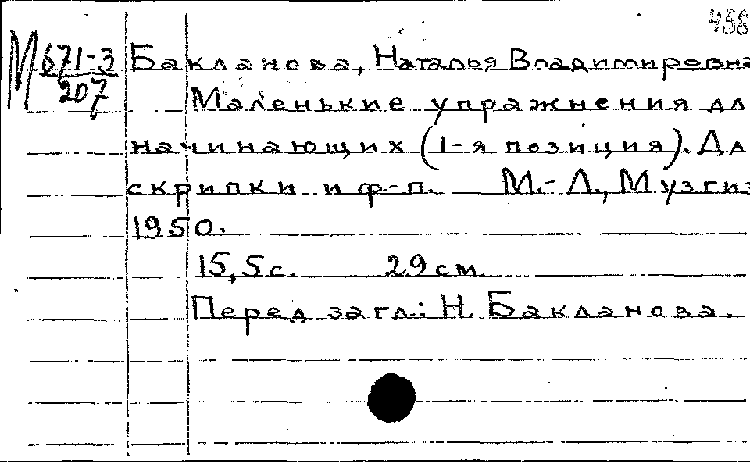 М 671-3
207
Бакланова, Наталья Владимировна
Маленькие упражнения дл
начинающих (1-я позиция). Дл
скрипки и ф-п. М.-Л., Музгиз
1950.
15,5 с. 29 см.
Перед загл.: Н. Бакланова.